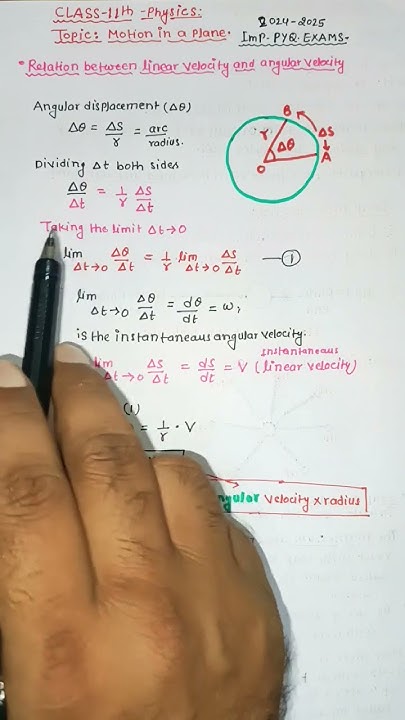 CLASS-11th -Physics:
2024-2025
Topic: Motion in a plane.
Imp. PYQ. EXAMS.
• Relation between linear velocity and angular velocity
Angular displacement (Δθ)
Δθ = ΔS/r = arc/radius.
B
r
ΔS
Δθ
O
A
Dividing Δt both sides
Δθ/Δt = 1/r ΔS/Δt
Taking the limit Δt→0
lim Δt→0 Δθ/Δt = 1/r lim Δt→0 ΔS/Δt —①
lim Δt→0 Δθ/Δt = dθ/dt = ω,
is the instantaneous angular velocity.
lim Δt→0 ΔS/Δt = ds/dt = V (instantaneous linear velocity)
(1)
= 1/r · V
ngular velocity × radius